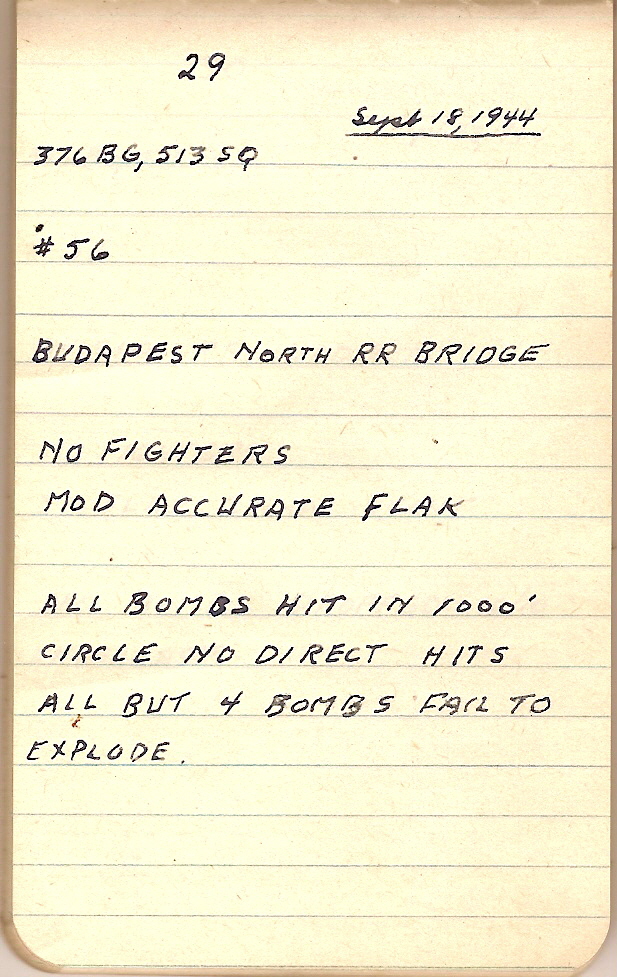 29
Sept 18, 1944
376 BG, 513 SQ
#56
BUDAPEST NORTH RR BRIDGE
NO FIGHTERS
MOD ACCURATE FLAK
ALL BOMBS HIT IN 1000'
CIRCLE NO DIRECT HITS
ALL BUT 4 BOMBS FAIL TO
EXPLODE.